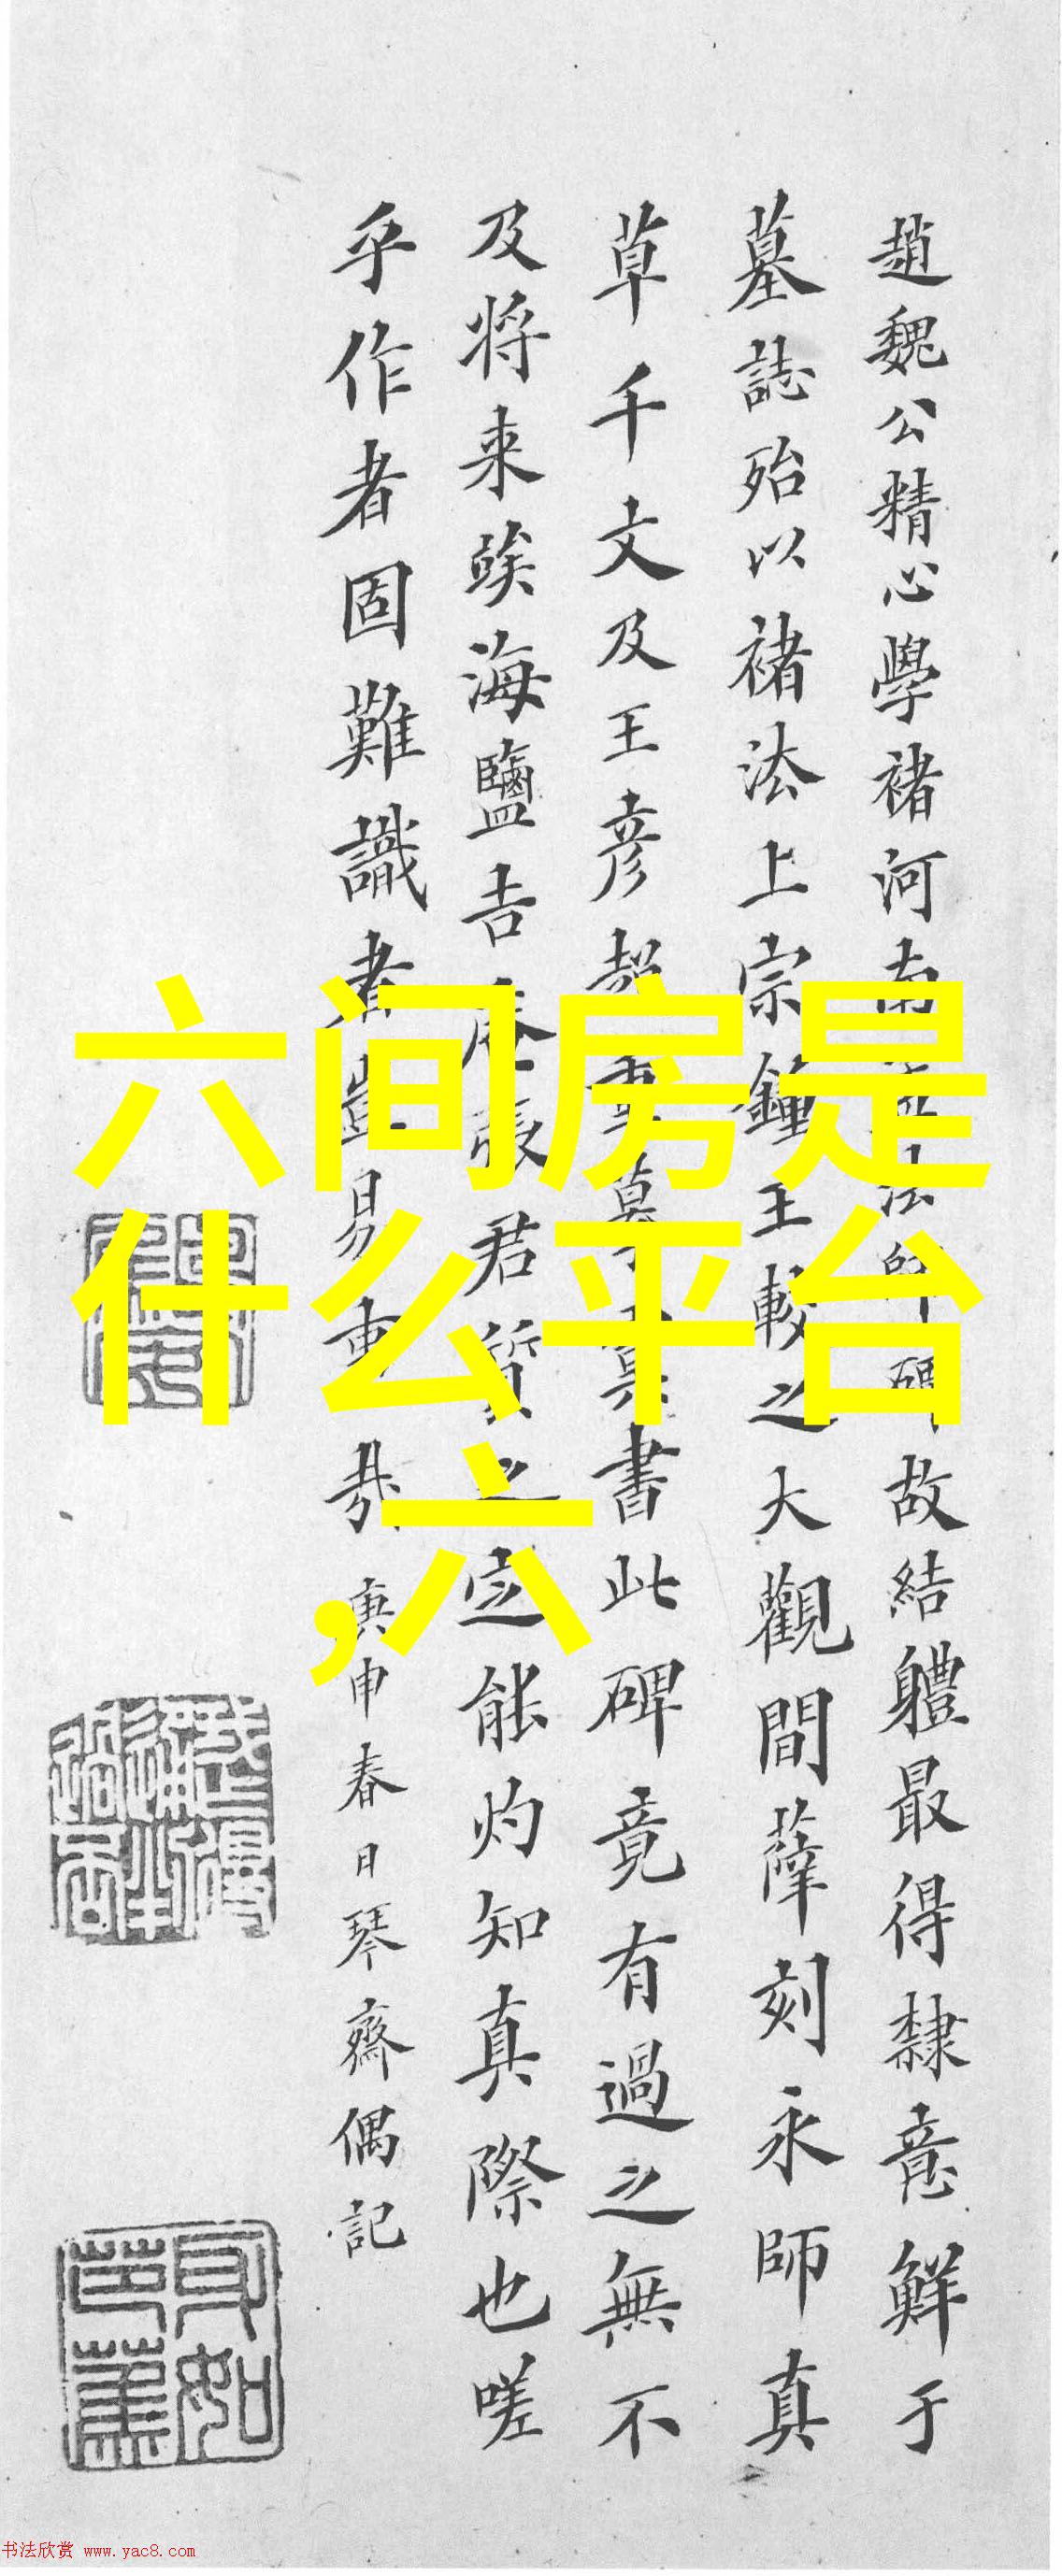 六间房是
什么平台
,六
趙魏公精心學褚河南法師碑故結軆最得隸意鮮于
墓誌殆以褚法上宗鍾王較之大觀間薛刻永師真
草千文及王彦超重書此碑竟有過之無不
及将来竢海鹽吉張君質之定能灼知真際也嗟
乎作者固難識者豈易事哉庚申春日琴齋偶記
书法欣赏 www.yac8.com